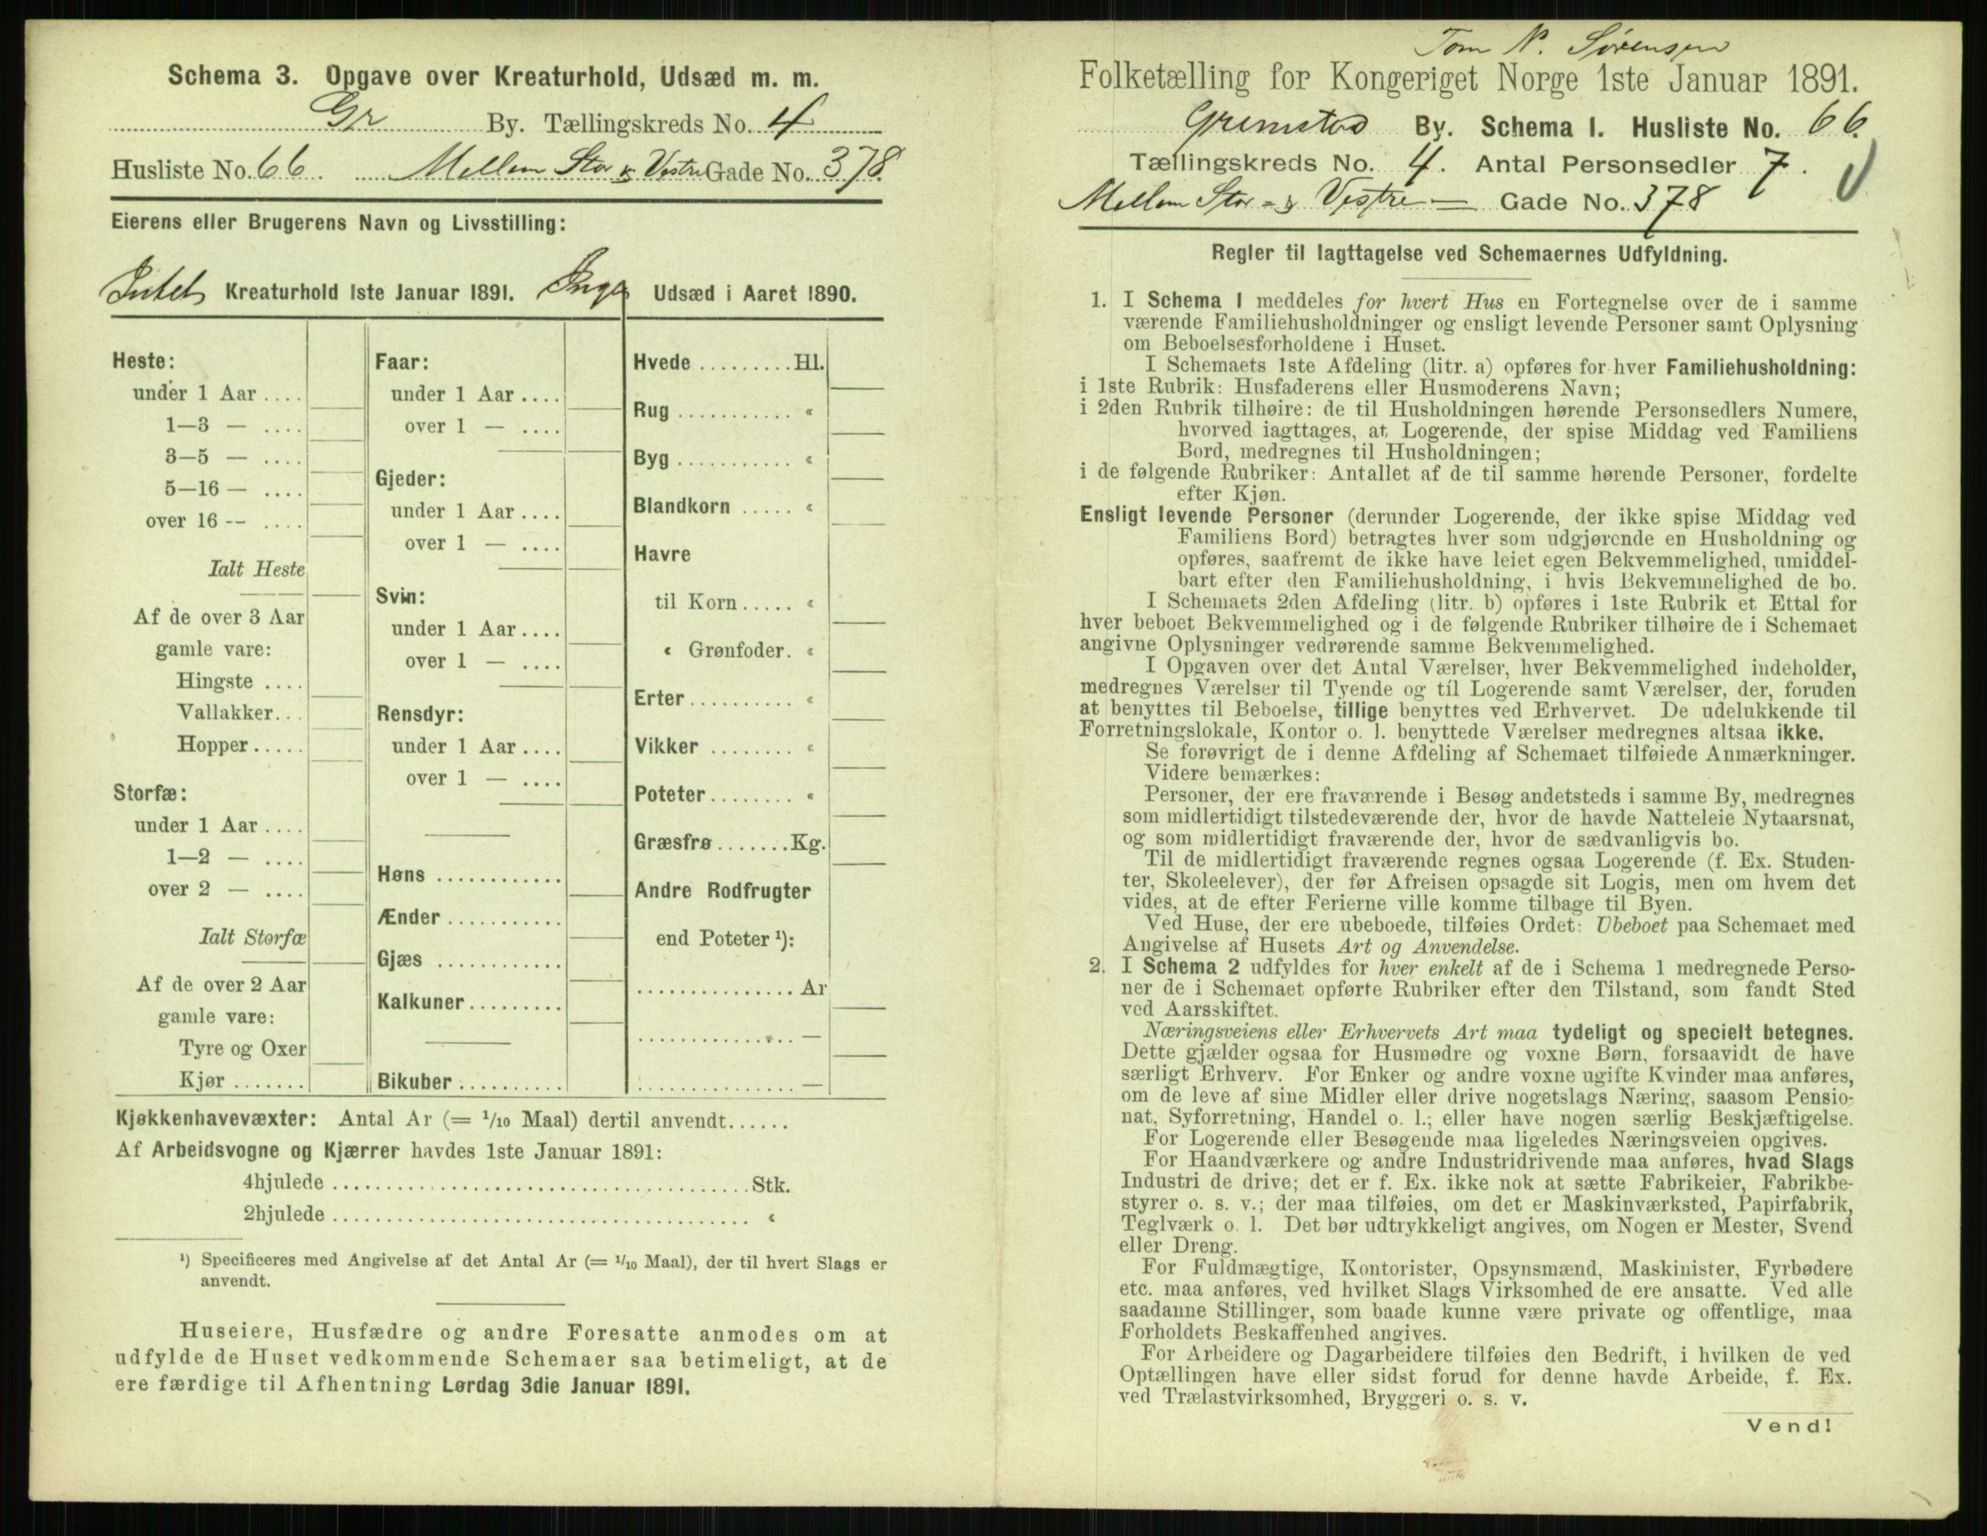 Schema 3. Opgave over Kreaturhold, Udsæd m. m.
Gr By. Tællingskreds No. 4
Husliste No. 66. Mellem Stor & Vestre Gade No. 378.
Eierens eller Brugerens Navn og Livsstilling:
Intet Kreaturhold 1ste Januar 1891. Ingen Udsæd i Aaret 1890.
Heste:
under 1 Aar ....
1—3 — ....
3—5 — ....
5—16 — ....
over 16 -- ....
Ialt Heste
Af de over 3 Aar
gamle vare:
Hingste ....
Vallakker...
Hopper.....
Storfæ:
under 1 Aar ....
1—2 — ....
over 2 — ....
Ialt Storfæ
Af de over 2 Aar
gamle vare:
Tyre og Oxer
Kjør .......
Faar:
under 1 Aar ....
over 1 — ....
Gjeder:
under 1 Aar ....
over 1 — ....
Svin:
under 1 Aar ....
over 1 — ....
Rensdyr:
under 1 Aar ....
over 1 — ....
Høns ............
Ænder ...........
Gjæs ............
Kalkuner.........
Bikuber ..........
Hvede .........Hl.
Rug ........... «
Byg ........... «
Blandkorn ..... «
Havre
til Korn..... «
« Grønfoder. «
Erter.......... «
Vikker ........ «
Poteter........ «
Græsfrø.......Kg.
Andre Rodfrugter
end Poteter ¹):
............... Ar
............... —
............... —
Kjøkkenhavevæxter: Antal Ar (= 1/10 Maal) dertil anvendt......
Af Arbeidsvogne og Kjærrer havdes 1ste Januar 1891:
4hjulede ...................................... Stk.
2hjulede ...................................... «
¹) Specificeres med Angivelse af det Antal Ar (= 1/10 Maal), der til hvert Slags er
anvendt.
Huseiere, Husfædre og andre Foresatte anmodes om at
udfylde de Huset vedkommende Schemaer saa betimeligt, at de
ere færdige til Afhentning Lørdag 3die Januar 1891.
Tom N. Sørensen
Folketælling for Kongeriget Norge 1ste Januar 1891.
Grimstad By. Schema I. Husliste No. 66.
Tællingskreds No. 4. Antal Personsedler 7.
Mellem Stor - & Vestre — Gade No. 378
Regler til Iagttagelse ved Schemaernes Udfyldning.
1. I Schema 1 meddeles for hvert Hus en Fortegnelse over de i samme
værende Familiehusholdninger og ensligt levende Personer samt Oplysning
om Beboelsesforholdene i Huset.
I Schemaets 1ste Afdeling (litr. a) opføres for hver Familiehusholdning:
i 1ste Rubrik: Husfaderens eller Husmoderens Navn;
i 2den Rubrik tilhøire: de til Husholdningen hørende Personsedlers Numere,
hvorved iagttages, at Logerende, der spise Middag ved Familiens
Bord, medregnes til Husholdningen;
i de følgende Rubriker: Antallet af de til samme hørende Personer, fordelte
efter Kjøn.
Ensligt levende Personer (derunder Logerende, der ikke spise Middag ved
Familiens Bord) betragtes hver som udgjørende en Husholdning og
opføres, saafremt de ikke have leiet egen Bekvemmelighed, umiddel-
bart efter den Familiehusholdning, i hvis Bekvemmelighed de bo.
I Schemaets 2den Afdeling (litr. b) opføres i 1ste Rubrik et Ettal for
hver beboet Bekvemmelighed og i de følgende Rubriker tilhøire de i Schemaet
angivne Oplysninger vedrørende samme Bekvemmelighed.
I Opgaven over det Antal Værelser, hver Bekvemmelighed indeholder,
medregnes Værelser til Tyende og til Logerende samt Værelser, der, foruden
at benyttes til Beboelse, tillige benyttes ved Erhvervet. De udelukkende til
Forretningslokale, Kontor o. l. benyttede Værelser medregnes altsaa ikke.
Se forøvrigt de i denne Afdeling af Schemaet tilføiede Anmærkninger.
Videre bemærkes:
Personer, der ere fraværende i Besøg andetsteds i samme By, medregnes
som midlertidigt tilstedeværende der, hvor de havde Natteleie Nytaarsnat,
og som midlertidigt fraværende der, hvor de sædvanligvis bo.
Til de midlertidigt fraværende regnes ogsaa Logerende (f. Ex. Studen-
ter, Skoleelever), der før Afreisen opsagde sit Logis, men om hvem det
vides, at de efter Ferierne ville komme tilbage til Byen.
Ved Huse, der ere ubeboede, tilføies Ordet: Ubeboet paa Schemaet med
Angivelse af Husets Art og Anvendelse.
2. I Schema 2 udfyldes for hver enkelt af de i Schema 1 medregnede Perso-
ner de i Schemaet opførte Rubriker efter den Tilstand, som fandt Sted
ved Aarsskiftet.
Næringsveiens eller Erhvervets Art maa tydeligt og specielt betegnes.
Dette gjælder ogsaa for Husmødre og voxne Børn, forsaavidt de have
særligt Erhverv. For Enker og andre voxne ugifte Kvinder maa anføres,
om de leve af sine Midler eller drive nogetslags Næring, saasom Pensio-
nat, Syforretning, Handel o. l.; eller have nogen særlig Beskjæftigelse.
For Logerende eller Besøgende maa ligeledes Næringsveien opgives.
For Haandværkere og andre Industridrivende maa anføres, hvad Slags
Industri de drive; det er f. Ex. ikke nok at sætte Fabrikeier, Fabrikbe-
styrer o. s. v.; der maa tilføies, om det er Maskinværksted, Papirfabrik,
Teglværk o. l. Det bør udtrykkeligt angives, om Nogen er Mester, Svend
eller Dreng.
For Fuldmægtige, Kontorister, Opsynsmænd, Maskinister, Fyrbødere
etc. maa anføres, ved hvilket Slags Virksomhed de ere ansatte. Ved alle
saadanne Stillinger, som baade kunne være private og offentlige, maa
Forholdets Beskaffenhed angives.
For Arbeidere og Dagarbeidere tilføies den Bedrift, i hvilken de ved
Optællingen have eller sidst forud for denne havde Arbeide, f. Ex.
ved Trælastvirksomhed, Bryggeri o. s. v.
Vend!